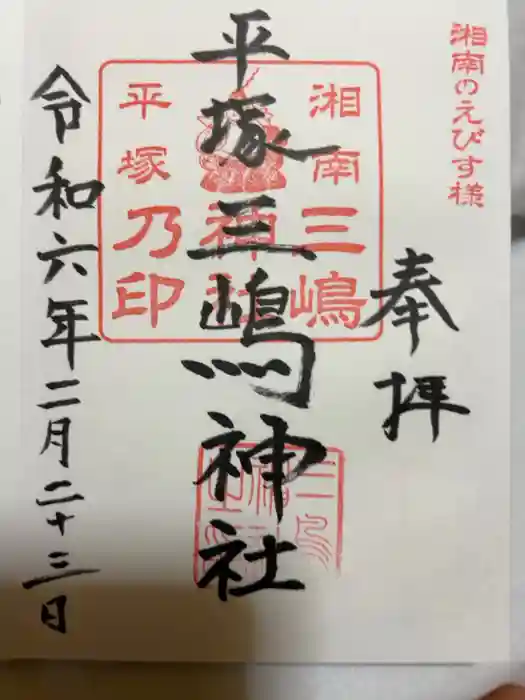 湘南のえびす様
奉拝
湘南三嶋
神社
平塚乃印
平塚三嶋神社
令和六年二月二十三日